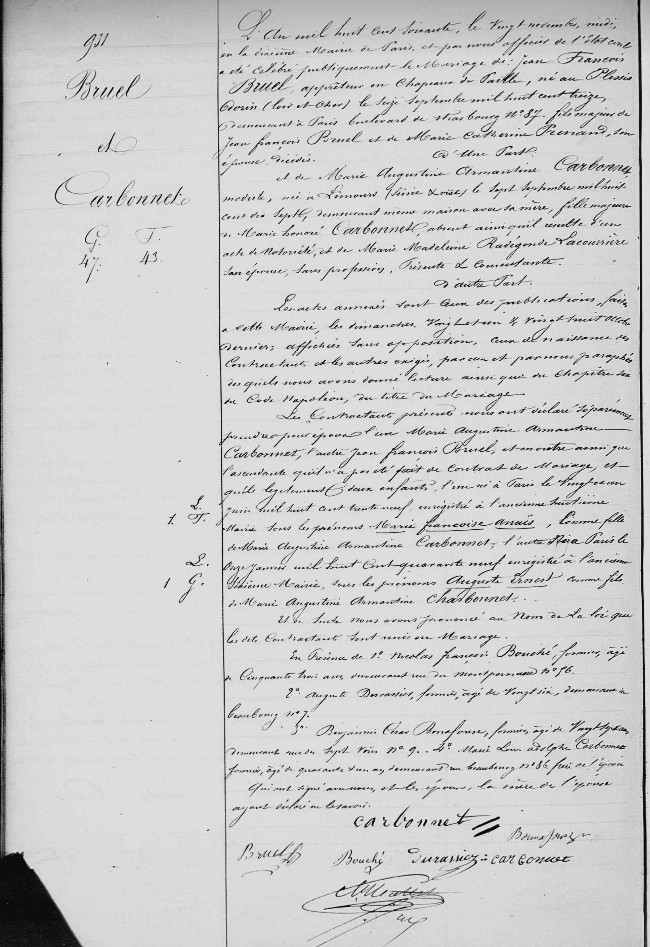 931
Bruel
et
Carbonnet
G. F.
47. 43.
L'An mil huit cent soixante, le vingt novembre, midi,
en la dixième Mairie de Paris, et par nous officier de l'Etat civil
a été célébré publiquement le Mariage de: jean François
Bruel, apprêteur en Chapeaux de Paille, né au Plessis
Dorin (Loir et Cher) le Seize Septembre mil huit cent treize,
demeurant à Paris boulevard de Strasbourg N° 87. fils majeur de
Jean françois Bruel et de Marie Catherine son
épouse, décédés.
D'Une Part.
et de Marie Augustine Armantine Carbonnet
modiste, née à Limours (Seine & Oise) le Sept Septembre mil huit
cent dix sept, demeurant même maison avec sa mère, fille majeure
de Marie honoré Carbonnet, absent ainsi qu'il resulte d'un
acte de Notoriété, et de Marie Madeleine Radegonde Lacourrière
Son épouse, sans profession, Présente & Consentante.
D'autre Part.
Les actes annexés sont Ceux des publications, faites
a cette Mairie, les dimanches, Vingt et un & Vingt huit Octobre
dernier; affichées Sans opposition, Ceux de naissance des
Contractants, et les autres exigés, par eux et par nous paraphés
desquels nous avons donné lecture ainsi que du Chapitre six
du Code Napoléon, du titre du Mariage.
Les Contractants présents nous ont déclaré Séparément
prendre pour époux l'un Marie Augustine Armantine
Carbonnet, l'autre Jean françois Bruel, et en outre ainsi que
l'ascendante qu'il n'a pas été fait de Contrat de Mariage, et
qu'ils legitiment deux enfants, l'un né à Paris le Vingt deux
L.
1. F.
juin mil huit cent trente neuf, enregistré à l'ancienne huitième
Mairie sous les prénoms Marie françoise anais, Comme fille
de Marie Augustine Armantine Carbonnet, l'autre Né a Paris le
L.
1 G.
Onze Janvier mil huit Cent quarante neuf enregistré à l'ancienne
Sixième Mairie, sous les prénoms Auguste Ernest comme fils
de Marie Augustine Armantine Charbonnet.
Et de Suite nous avons prononcé au Nom de La loi que
les dits Contractants Sont unis en Mariage.
En Présence de 1° Nicolas françois Bouché, âgé
de Cinquante trois ans, demeurant rue du Montparnasse N° 56.
2° Auguste âgé de Vingt six, demeurant
beaubourg n° 7.
3° Benjamin César Bonafouse, âgé de Vingt
demeurant rue des Sept Voies N° 9. 4° Marie Louis adolphe Carbonnet
âgé de quarante & un ans, demeurant rue beaubourg N° 86, frère de l'épouse
Qui ont signé avec nous, et les époux, la mère de l'épouse
ayant déclaré ne le savoir.
carbonnet
Bruel Bouché carbonnet